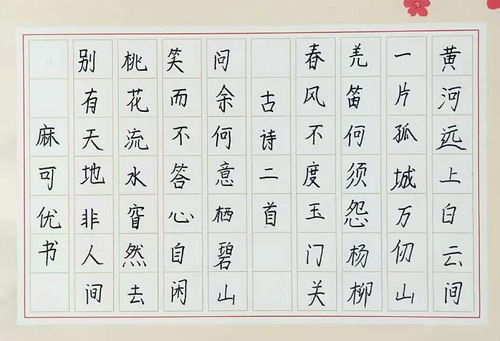 黄河远上白云间
一片孤城万仞山
羌笛何须怨杨柳
春风不度玉门关
古诗二首
问余何意栖碧山
笑而不答心自闲
桃花流水窅然去
别有天地非人间
麻可优书